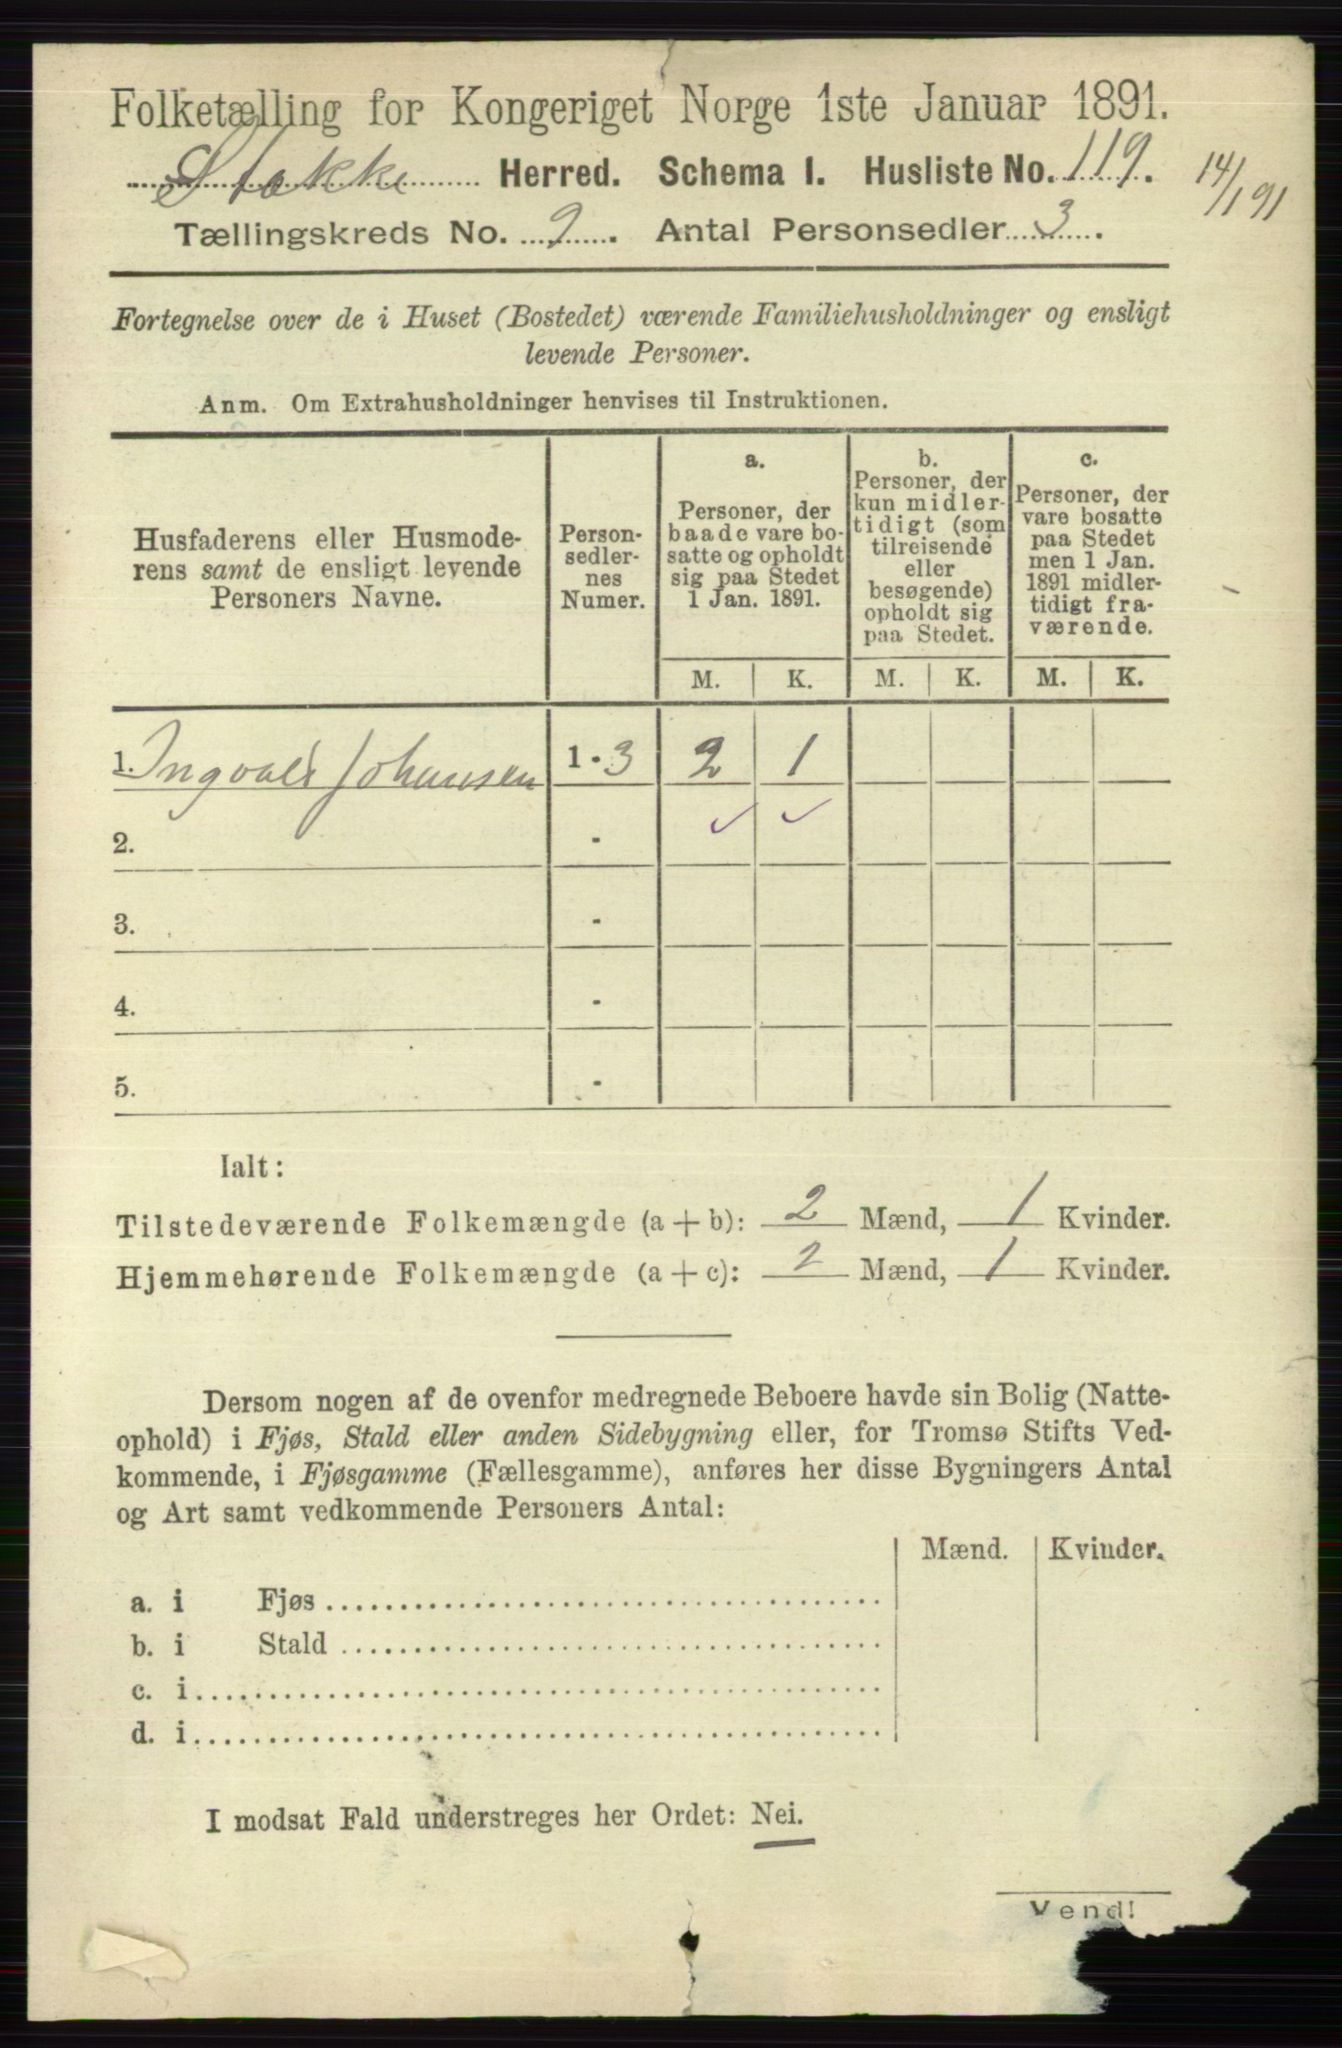 Folketælling for Kongeriget Norge 1ste Januar 1891.
Stokke Herred. Schema I. Husliste No. 119.
14/1 91
Tællingskreds No. 9. Antal Personsedler 3.
Fortegnelse over de i Huset (Bostedet) værende Familiehusholdninger og ensligt
levende Personer.
Anm. Om Extrahusholdninger henvises til Instruktionen.
Husfaderens eller Husmode-
rens samt de ensligt levende
Personers Navne.
Person-
sedler-
nes
Numer.
a.
Personer, der
baade vare bo-
satte og opholdt
sig paa Stedet
1 Jan. 1891.
b.
Personer, der
kun midler-
tidigt (som
tilreisende
eller
besøgende)
opholdt sig
paa Stedet.
c.
Personer, der
vare bosatte
paa Stedet
men 1 Jan.
1891 midler-
tidigt fra-
værende.
M. K. M. K. M. K.
1. Ingvald Johansen 1 - 3 2 1
2. - ✓ ✓
3. -
4. -
5. -
Ialt:
Tilstedeværende Folkemængde (a + b): 2 Mænd, 1 Kvinder.
Hjemmehørende Folkemængde (a + c): 2 Mænd, 1 Kvinder.
Dersom nogen af de ovenfor medregnede Beboere havde sin Bolig (Natte-
ophold) i Fjøs, Stald eller anden Sidebygning eller, for Tromsø Stifts Ved-
kommende, i Fjøsgamme (Fællesgamme), anføres her disse Bygningers Antal
og Art samt vedkommende Personers Antal:
Mænd. Kvinder.
a. i Fjøs
b. i Stald
c. i
d. i
I modsat Fald understreges her Ordet: Nei.
Vend!